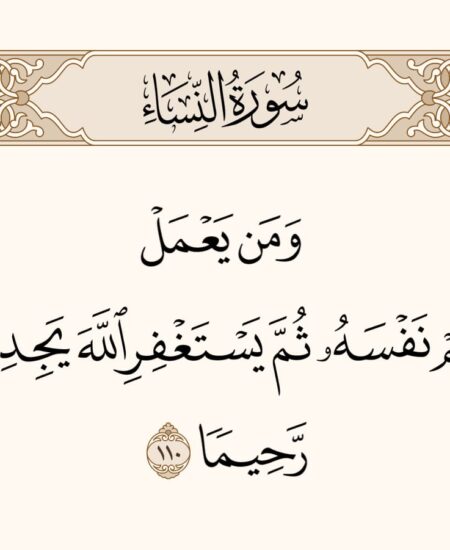 سُورَةُ النِّسَاءِ
وَمَن يَعْمَلْ
نَفْسَهُۥ ثُمَّ يَسْتَغْفِرِ ٱللَّهَ يَجِدِ
رَّحِيمًا ١١٠